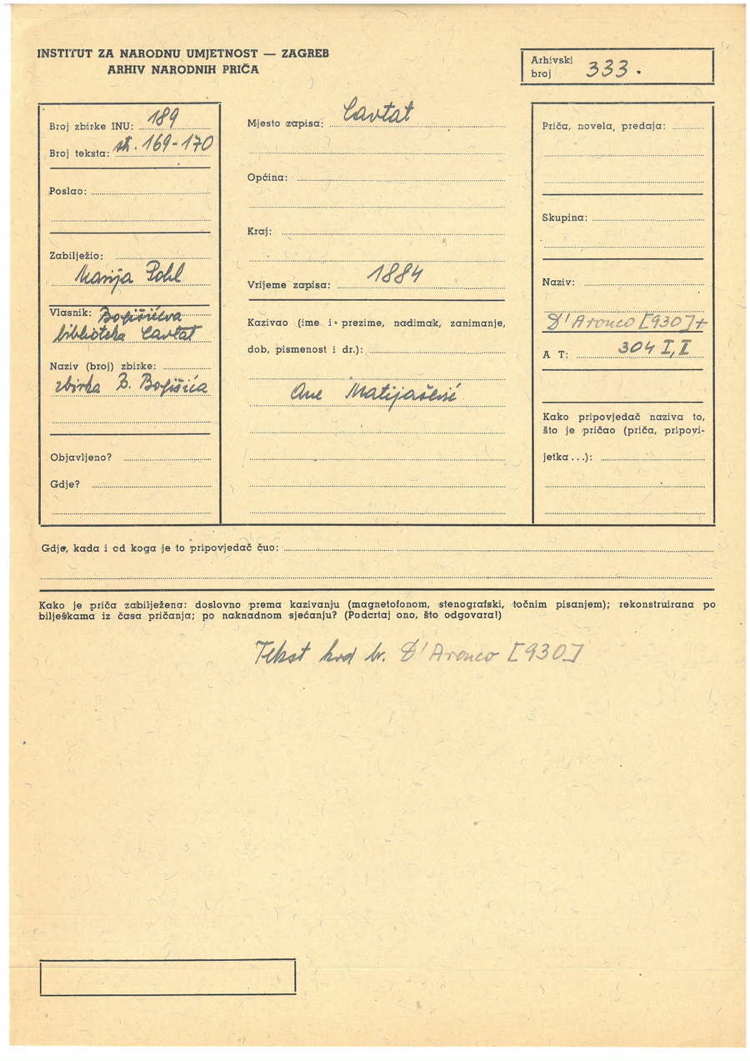 INSTITUT ZA NARODNU UMJETNOST — ZAGREB
ARHIV NARODNIH PRIČA
Arhivski
broj 333.
Broj zbirke INU: 189
Broj teksta: str. 169-170
Poslao:
Zabilježio:
Marija Pohl
Vlasnik: Bogišićeva
biblioteka Cavtat
Naziv (broj) zbirke:
zbirka B. Bogišića
Objavljeno?
Gdje?
Mjesto zapisa: Cavtat
Općina:
Kraj:
Vrijeme zapisa: 1884
Kazivao (ime i prezime, nadimak, zanimanje,
dob, pismenost i dr.):
Ane Matijašević
Priča, novela, predaja:
Skupina:
Naziv:
D'Aronco [930]+
A T: 304 I, II
Kako pripovjedač naziva to,
što je pričao (priča, pripovi-
jetka...):
Gdje, kada i od koga je to pripovjedač čuo:
Kako je priča zabilježena: doslovno prema kazivanju (magnetofonom, stenografski, točnim pisanjem); rekonstruirana po
bilješkama iz časa pričanja; po naknadnom sjećanju? (Podcrtaj ono, što odgovara!)
Tekst kod br. D'Aronco [930]